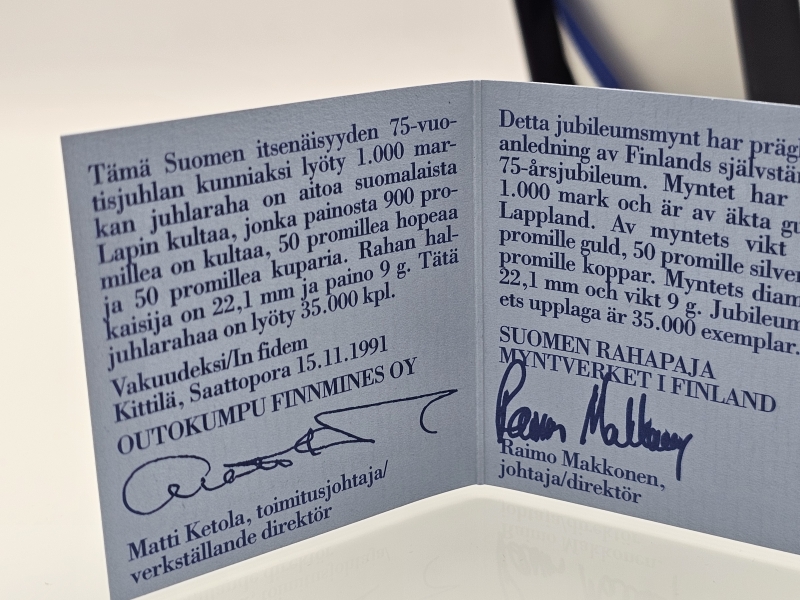 Tämä Suomen itsenäisyyden 75-vuo-
tisjuhlan kunniaksi lyöty 1.000 mar-
kan juhlaraha on aitoa suomalaista
Lapin kultaa, jonka painosta 900 pro-
millea on kultaa, 50 promillea hopeaa
ja 50 promillea kuparia. Rahan hal-
kaisija on 22,1 mm ja paino 9 g. Tätä
juhlarahaa on lyöty 35.000 kpl.
Vakuudeksi/In fidem
Kittilä, Saattopora 15.11.1991
OUTOKUMPU FINNMINES OY
Matti Ketola, toimitusjohtaja/
verkställande direktör
Detta jubileumsmynt har
anledning av Finlands
75-årsjubileum. Myntet har
1.000 mark och är av äkta
Lappland. Av myntets vikt
promille guld, 50 promille
promille koppar. Myntets
22,1 mm och vikt 9 g.
ets upplaga är 35.000 exemplar.
SUOMEN RAHAPAJA
MYNTVERKET I FINLAND
Raimo Makkonen
Raimo Makkonen,
johtaja/direktör